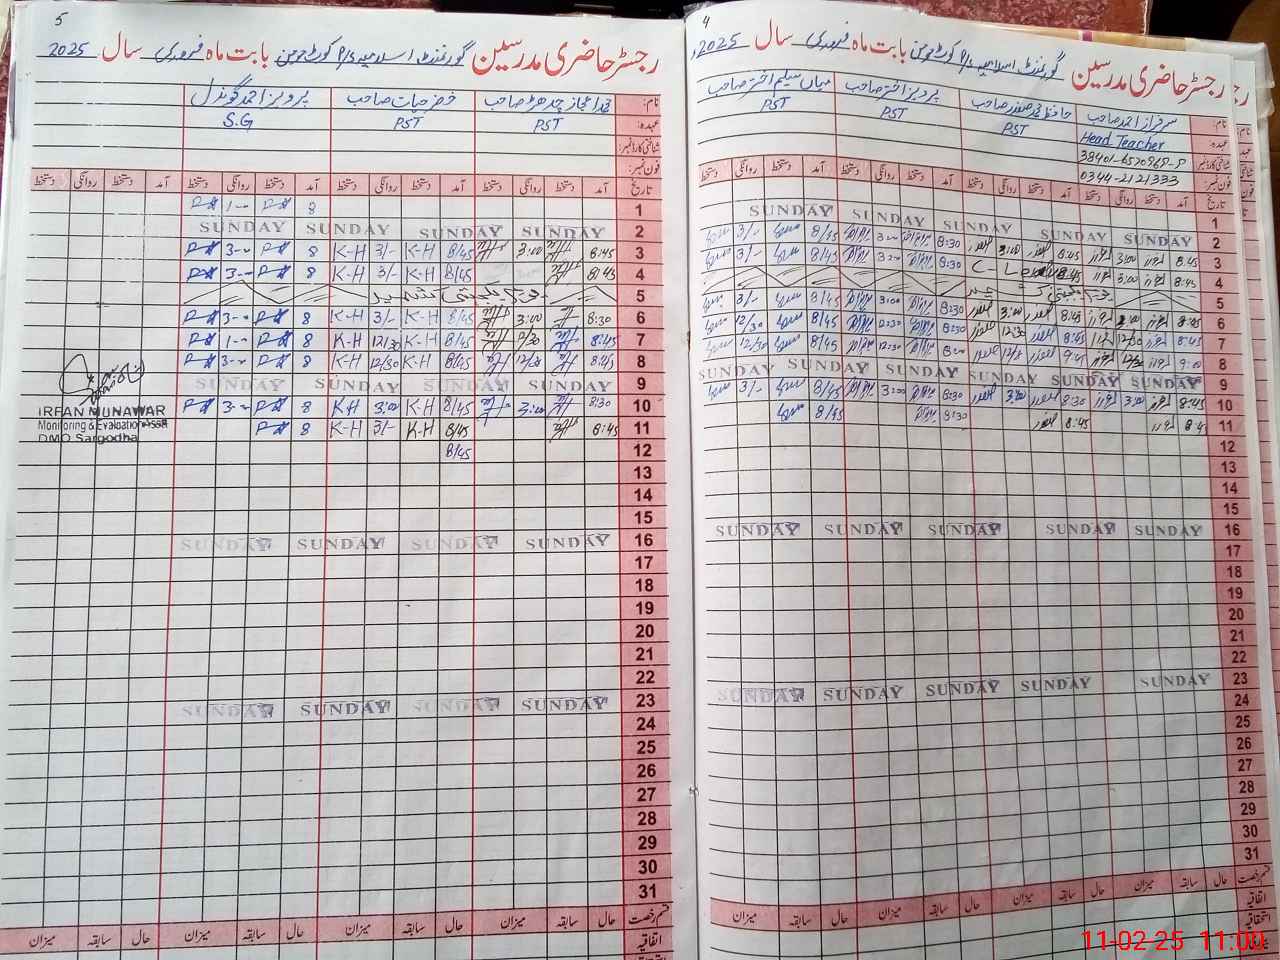 4
رجسٹر حاضری مدرسین گورنمنٹ اسلامیہ P/S کوٹ مومن بابت ماہ فروری سال 2025
نام: سرفراز احمد صاحب حافظ محمد صفدر صاحب پرویز اختر صاحب میاں سلیم اختر صاحب
عہدہ: Head Teacher PST PST PST
شناختی کارڈ نمبر: 38401-6520968-5
فون نمبر: 0344-2121333
تاریخ آمد دستخط روانگی دستخط آمد دستخط روانگی دستخط آمد دستخط روانگی دستخط آمد دستخط روانگی دستخط
1
2 SUNDAY SUNDAY SUNDAY SUNDAY
3 8:45 3:00 8:45 3:00 8:30 3:00 8/45 3/-
4 8:45 3:00 C-Leave 8:30 3:00 8/45 3/-
5 یوم یکجہتی کشمیر
6 8:45 3:00 8:45 3:00 8:30 3:00 8/45 3/-
7 8:45 12:30 8:45 12:30 8:30 12:30 8/45 12/30
8 9:00 12/30 9:00 8/45 12/30
9 SUNDAY SUNDAY SUNDAY SUNDAY SUNDAY
10 8:45 3:00 8:30 3:00 8:30 3:00 8/45 3/-
11 8:45 8:45 8:30 8/45
12
13
14
15
16 SUNDAY SUNDAY SUNDAY SUNDAY SUNDAY
17
18
19
20
21
22
23 SUNDAY SUNDAY SUNDAY SUNDAY SUNDAY
24
25
26
27
28
29
30
31
قسم رخصت حال سابقہ میزان حال سابقہ میزان حال سابقہ میزان حال سابقہ میزان
اتفاقیہ
استحقاقیہ
5
رجسٹر حاضری مدرسین گورنمنٹ اسلامیہ P/S کوٹ مومن بابت ماہ فروری سال 2025
نام: محمد اعجاز چدھڑ صاحب خضر حیات صاحب پرویز احمد گوندل
عہدہ: PST PST S.G
شناختی کارڈ نمبر:
فون نمبر:
تاریخ آمد دستخط روانگی دستخط آمد دستخط روانگی دستخط آمد دستخط روانگی دستخط آمد دستخط روانگی دستخط
1 8 1-00
2 SUNDAY SUNDAY SUNDAY SUNDAY
3 8:45 3:00 8/45 K-H 3/- K-H 8 3-00
4 8:45 8/45 K-H 3/- K-H 8 3-00
5 یوم یکجہتی کشمیر
6 8:30 3:00 8/45 K-H 3/- K-H 8 3-00
7 8:45 12/30 8/45 K-H 12/30 K-H 8 1-00
8 8:45 12/30 8/45 K-H 12/30 K-H 8 3-00
9 SUNDAY SUNDAY SUNDAY SUNDAY
10 8:30 3:00 8/45 K-H 3:00 K-H 8 3-00
11 8:45 8/45 K-H 3/- K-H 8
12 8/45
13
14
15
16 SUNDAY SUNDAY SUNDAY SUNDAY
17
18
19
20
21
22
23 SUNDAY SUNDAY SUNDAY SUNDAY
24
25
26
27
28
29
30
31
قسم رخصت حال سابقہ میزان حال سابقہ میزان حال سابقہ میزان
اتفاقیہ
IRFAN MUNAWAR
Monitoring & Evaluation Assit
DMO Sargodha
11-02-25 11:00